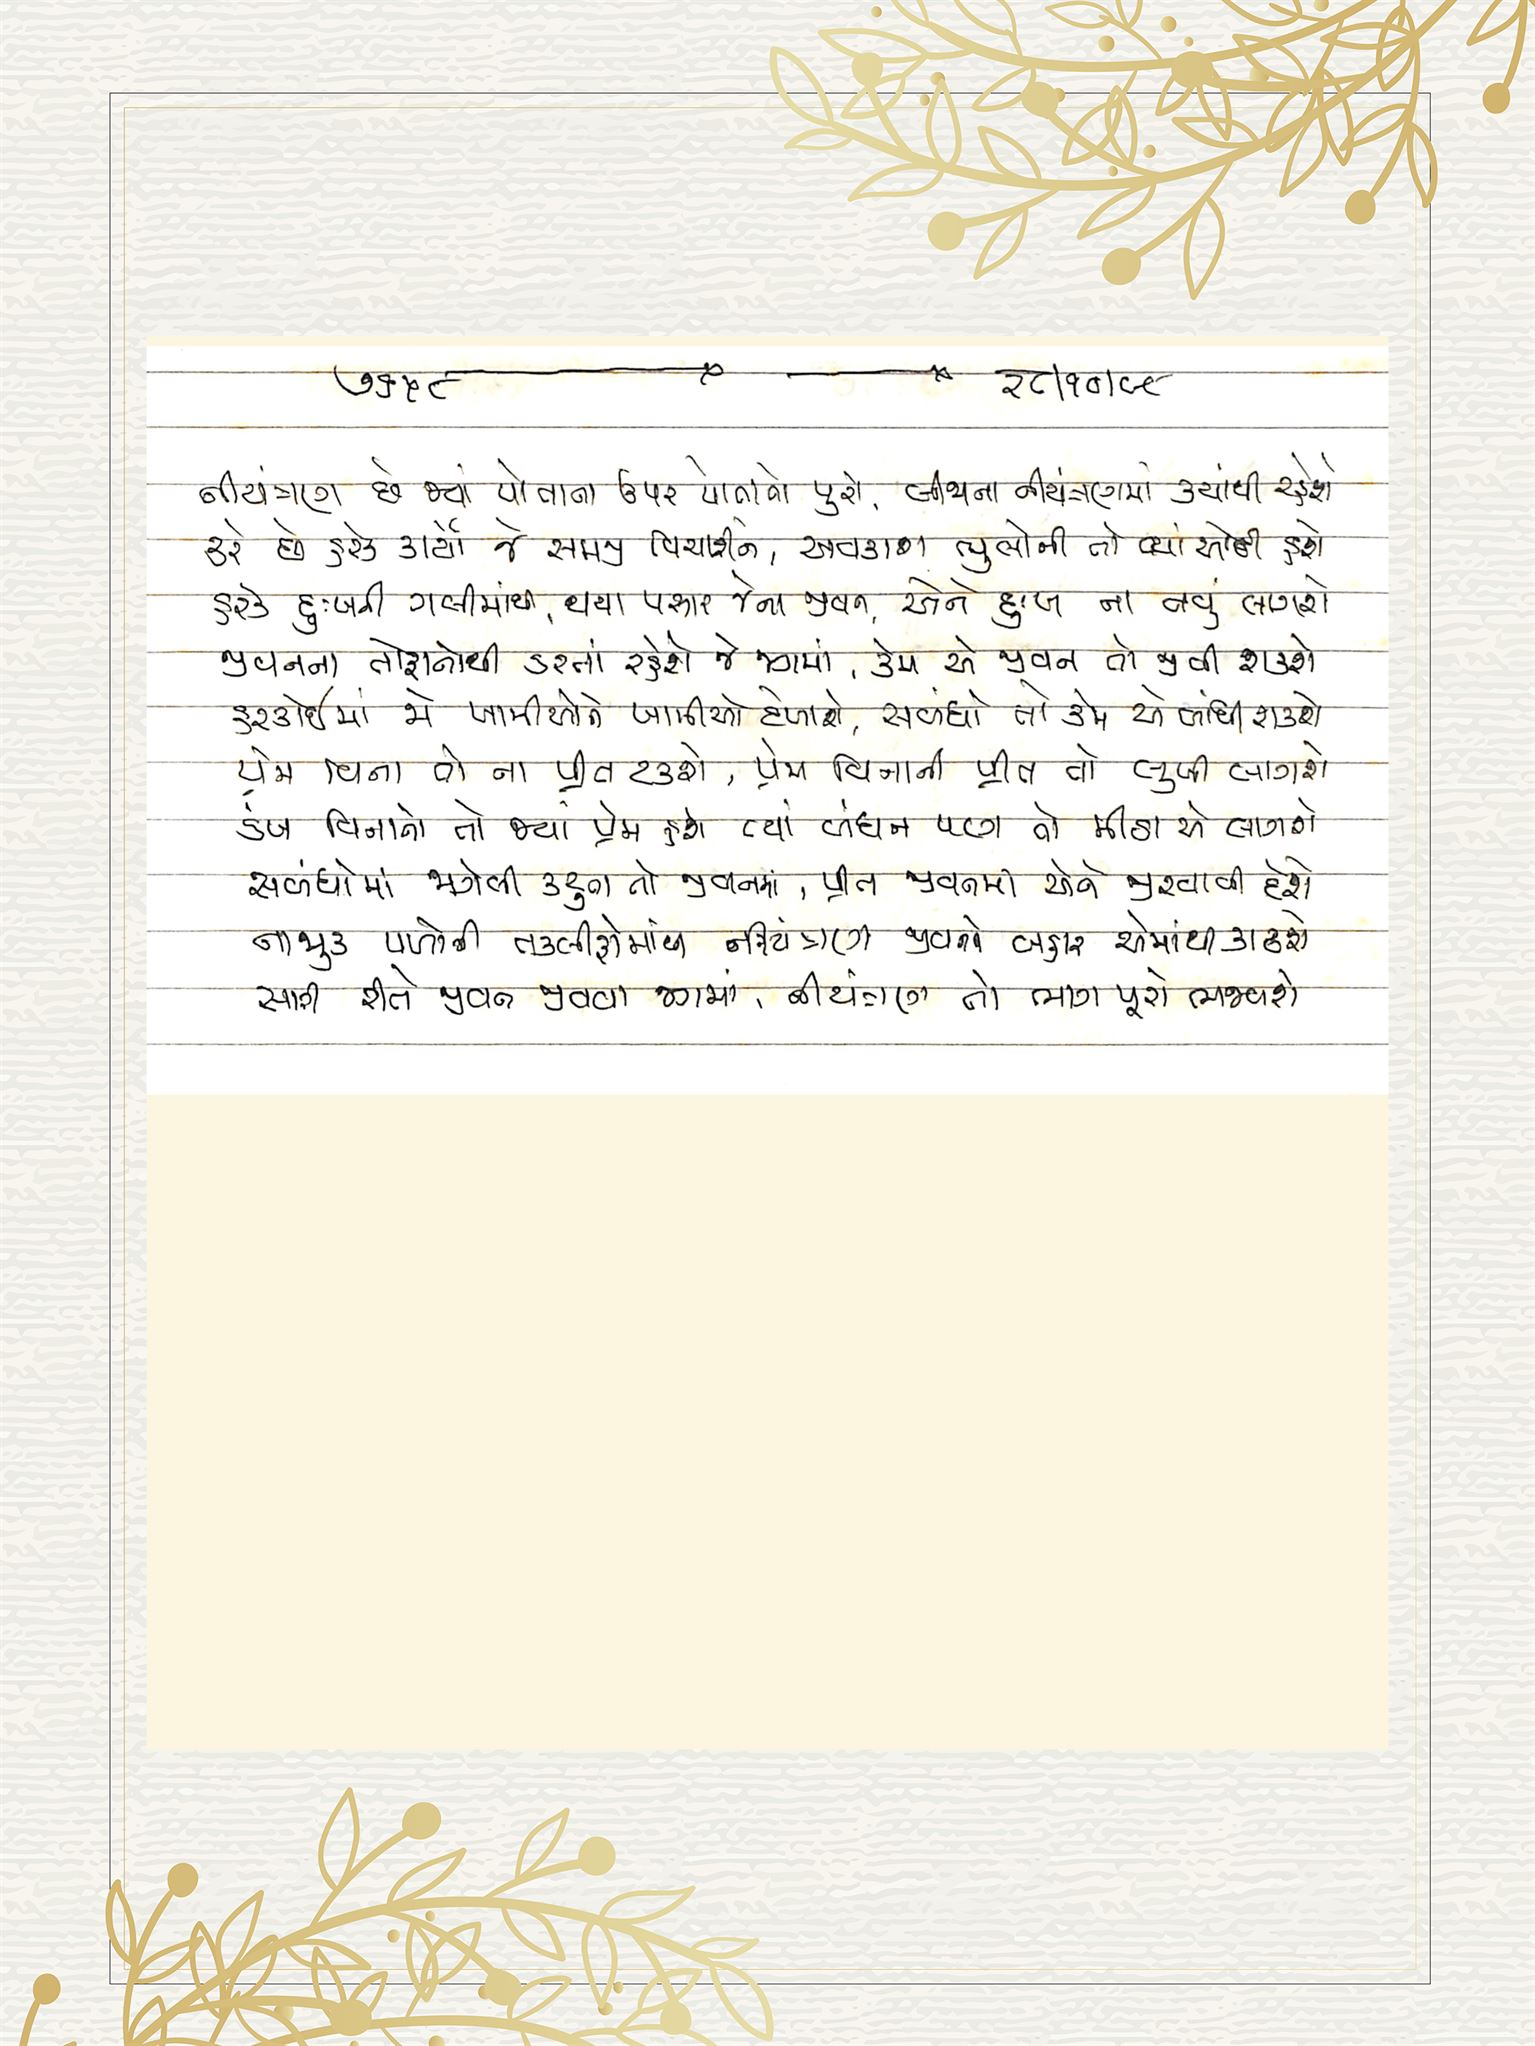 ૭૬૫૯ ૨૮/૧૦/૮૯
નીયંત્રણ છે જ્યાં પોતાના ઉપર પોતાનો પુરો, બીજાના નીયંત્રણમાં ક્યાંથી રહેશે
કરે છે હરેક કાર્યો જે સમજી વિચારીને, અવકાશ ભુલોની તો ત્યાં ઓછી હશે
હરેક દુઃખની ગલીમાંથી, થયા પસાર જેના જીવન, એને દુઃખ ના નવું લાગશે
જીવનના તોફાનોથી ડરતાં રહેશે જે જગમાં, કેમ એ જીવન તો જીવી શકશે
હરકોઈમાં જે ખામીઓને ખામીઓ દેખાશે, સબંધો તો કેમ એ બાંધી શકશે
પ્રેમ વિના તો ના પ્રીત ટકશે, પ્રેમ વિનાની પ્રીત તો લુખી લાગશે
ડંખ વિનાનો તો જ્યાં પ્રેમ હશે ત્યાં બંધન પણ તો મીઠા એ લાગશે
સબંધોમાં જાગેલી કટુતા તો જીવનમાં, પ્રીત જીવનમાં એને જીરવાવી દેશે
નાજુક પળોની તકલીફોમાંથી નીયંત્રણ જીવનને બહાર એમાંથી કાઢશે
સારી રીતે જીવન જીવવા જગમાં, નીયંત્રણ તો ભાગ પૂરો ભજવશે